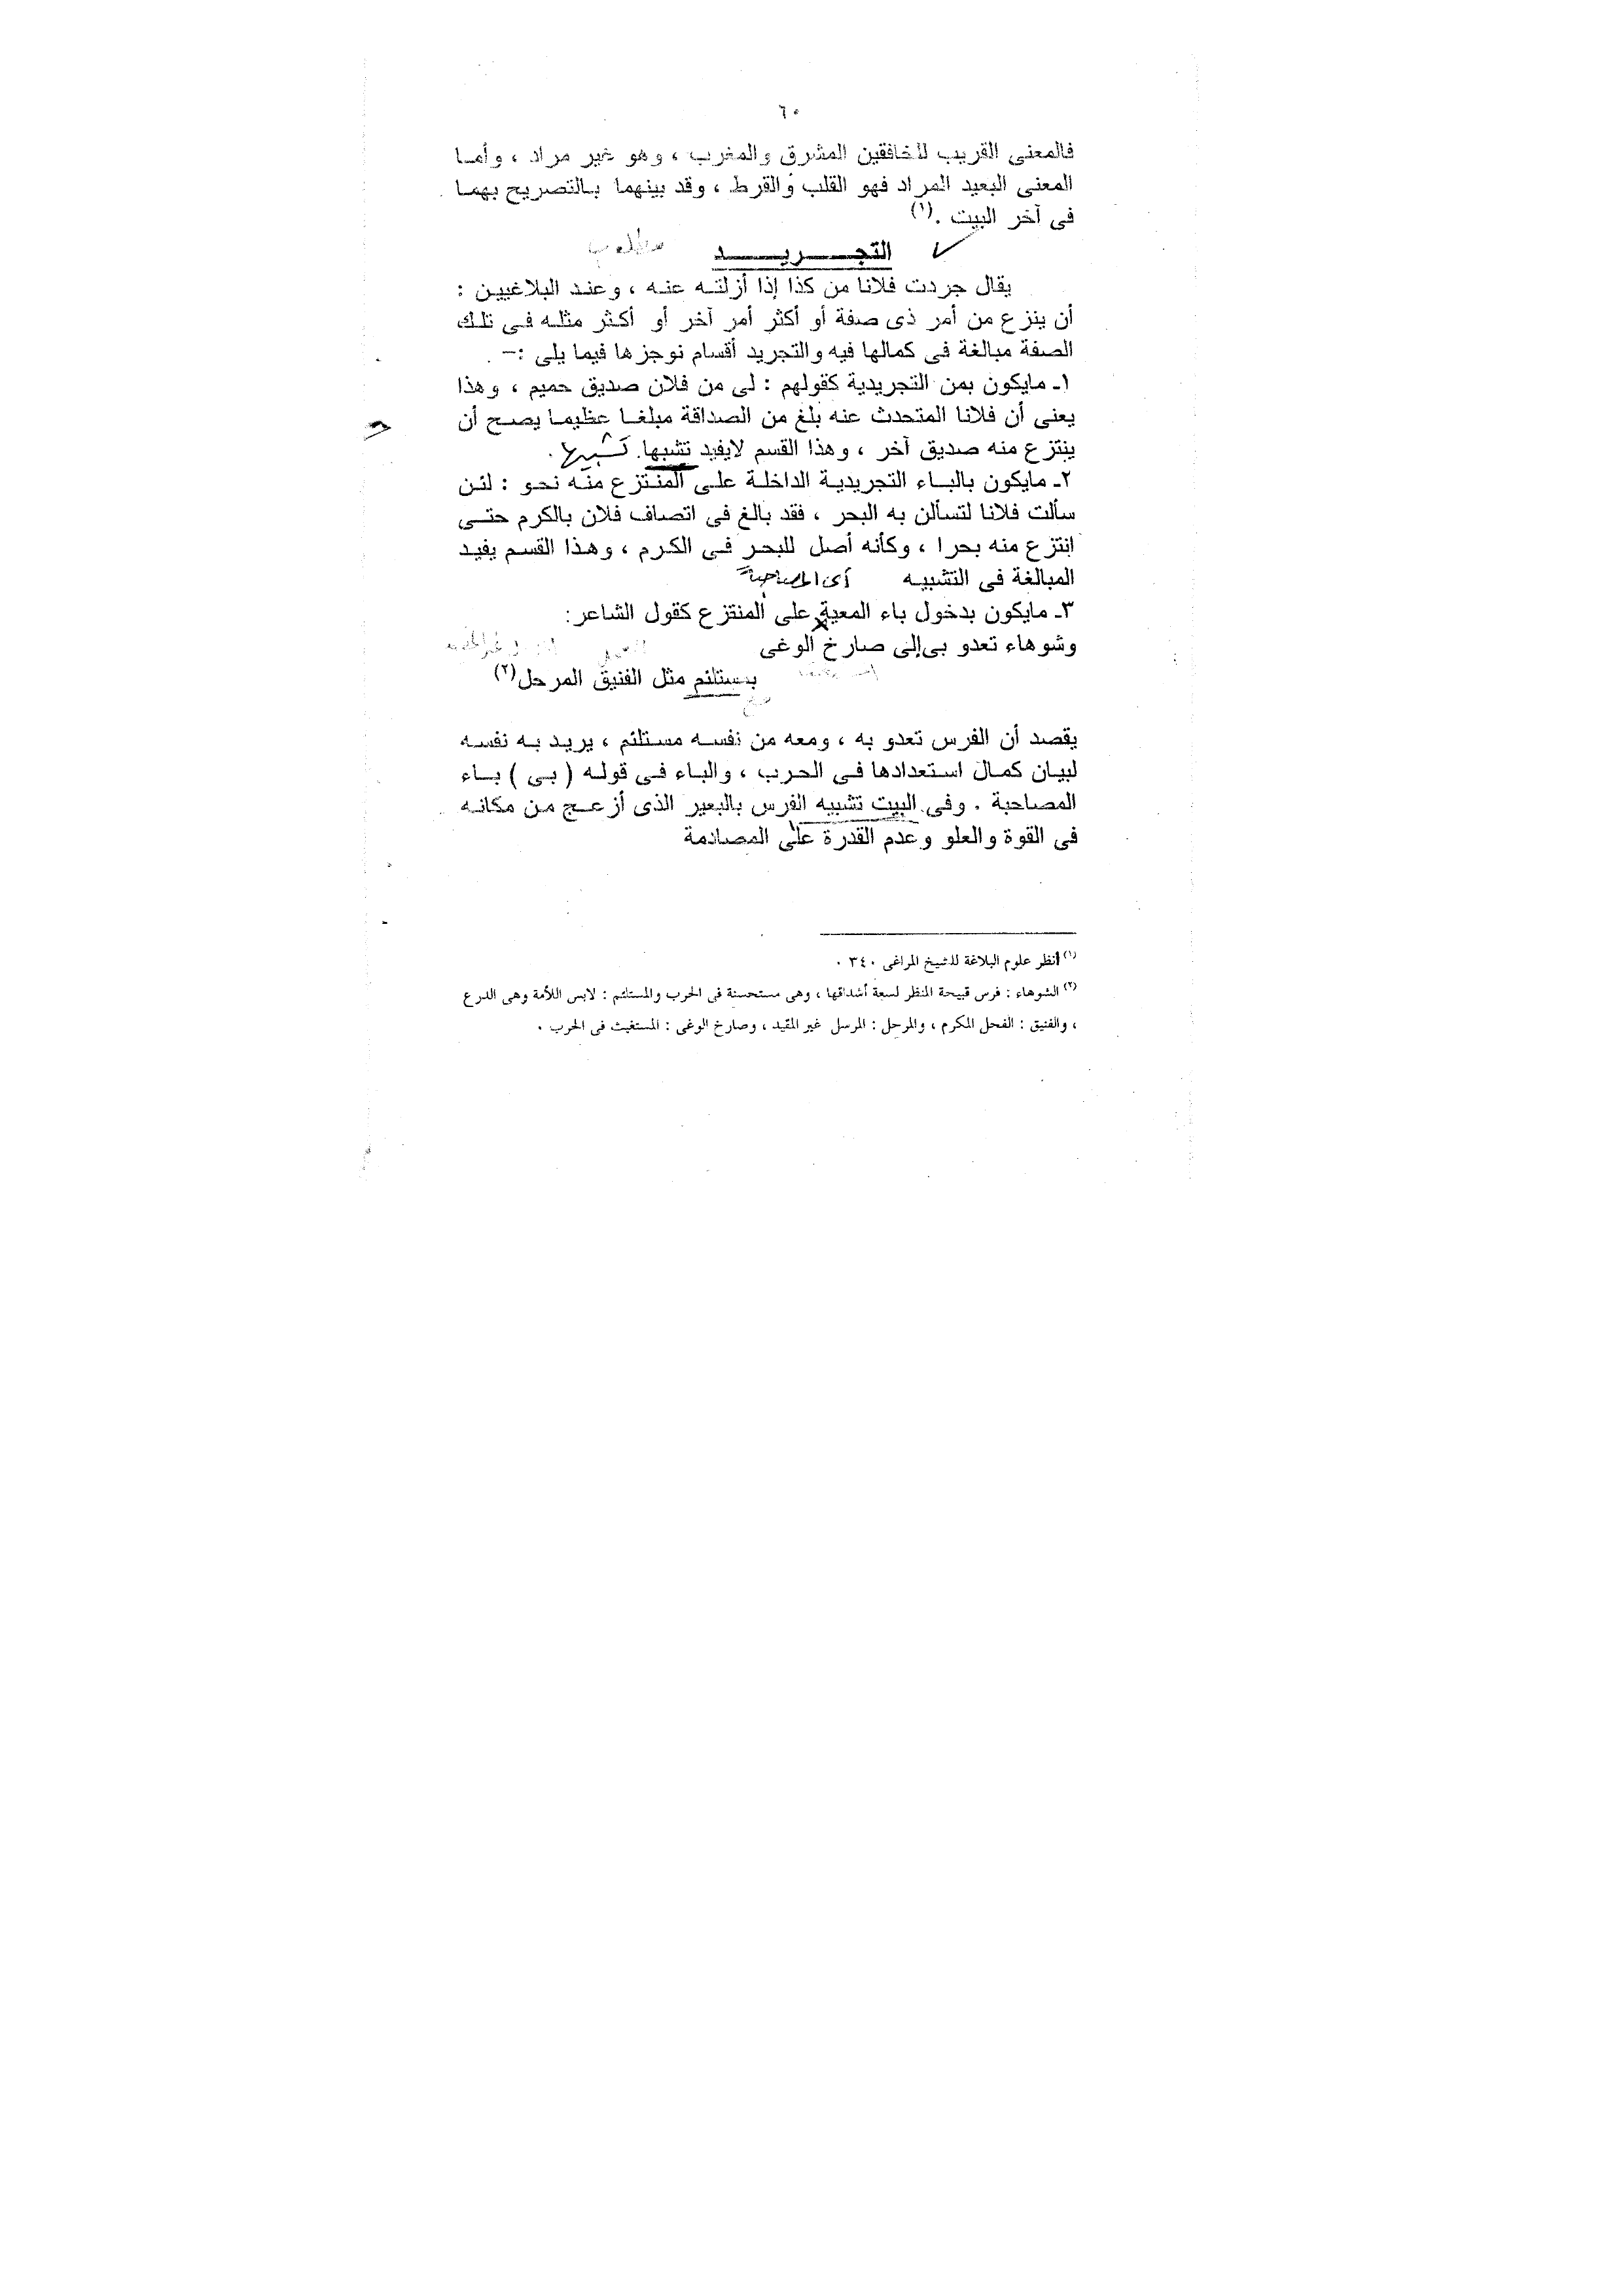 ٦٠
فالمعنى القريب للخافقين المشرق والمغرب ، وهو غير مراد ، وأما
المعنى البعيد المراد فهو القلب والقرط ، وقد بينهما بالتصريح بهما
فى آخر البيت .(١)
التجـــريـــــد مطلوب
يقال جردت فلانا من كذا إذا أزلته عنه ، وعند البلاغيين :
أن ينزع من أمر ذى صفة أو أكثر أمر آخر أو أكثر مثله فى تلك
الصفة مبالغة فى كمالها فيه والتجريد أقسام نوجزها فيما يلى :–
١ـ مايكون بمن التجريدية كقولهم : لى من فلان صديق حميم ، وهذا
يعنى أن فلانا المتحدث عنه بلغ من الصداقة مبلغا عظيما يصح أن
ينتزع منه صديق آخر ، وهذا القسم لايفيد تشبها. تشبيها .
٢ـ مايكون بالباء التجريدية الداخلة على المنتزع منه نحو : لئن
سألت فلانا لتسألن به البحر ، فقد بالغ فى اتصاف فلان بالكرم حتى
انتزع منه بحرا ، وكأنه أصل للبحر فى الكرم ، وهذا القسم يفيد
المبالغة فى التشبيه أى المصاحبة
٣ـ مايكون بدخول باء المعية على المنتزع كقول الشاعر:
وشوهاء تعدو بى إلى صارخ الوغى
بمستلئم مثل الفنيق المرحل(٢)
يقصد أن الفرس تعدو به ، ومعه من نفسه مستلئم ، يريد به نفسه
لبيان كمال استعدادها فى الحرب ، والباء فى قوله ( بى ) باء
المصاحبة . وفى البيت تشبيه الفرس بالبعير الذى أزعج من مكانه
فى القوة والعلو وعدم القدرة على المصادمة
(١) أنظر علوم البلاغة للشيخ المراغى ٣٤٠ .
(٢) الشوهاء : فرس قبيحة المنظر لسعة أشداقها ، وهى مستحسنة فى الحرب والمستلئم : لابس اللأمة وهى الدرع
، والفنيق : الفحل المكرم ، والمرحل : المرسل غير المقيد ، وصارخ الوغى : المستغيث فى الحرب .